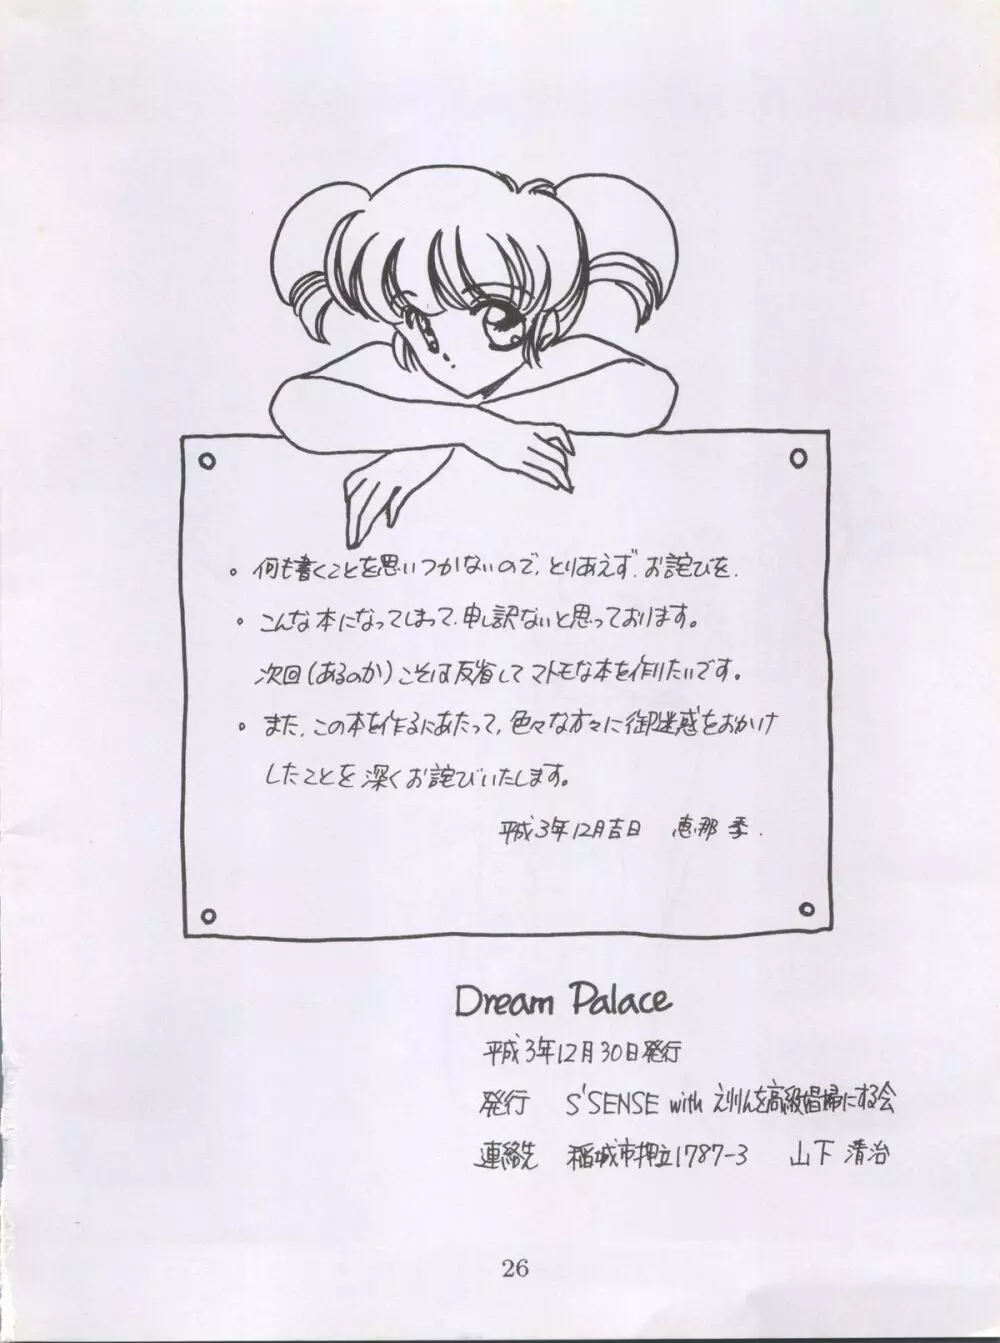 ・何も書くことを思いつかないので、とりあえず、お詫びを、
・こんな本になってしまって、申し訳ないと思っております。
次回(あるのか)こそは反省してマトモな本を作りたいです。
・また、この本を作るにあたって、色々な方々に御迷惑をおかけ
したことを深くお詫びいたします。
平成3年12月吉日 恵那 季.
Dream Palace
平成3年12月30日発行
発行 S'SENSE with えりりんを高級娼婦にする会
連絡先 稲城市押立1787-3 山下 清治
26